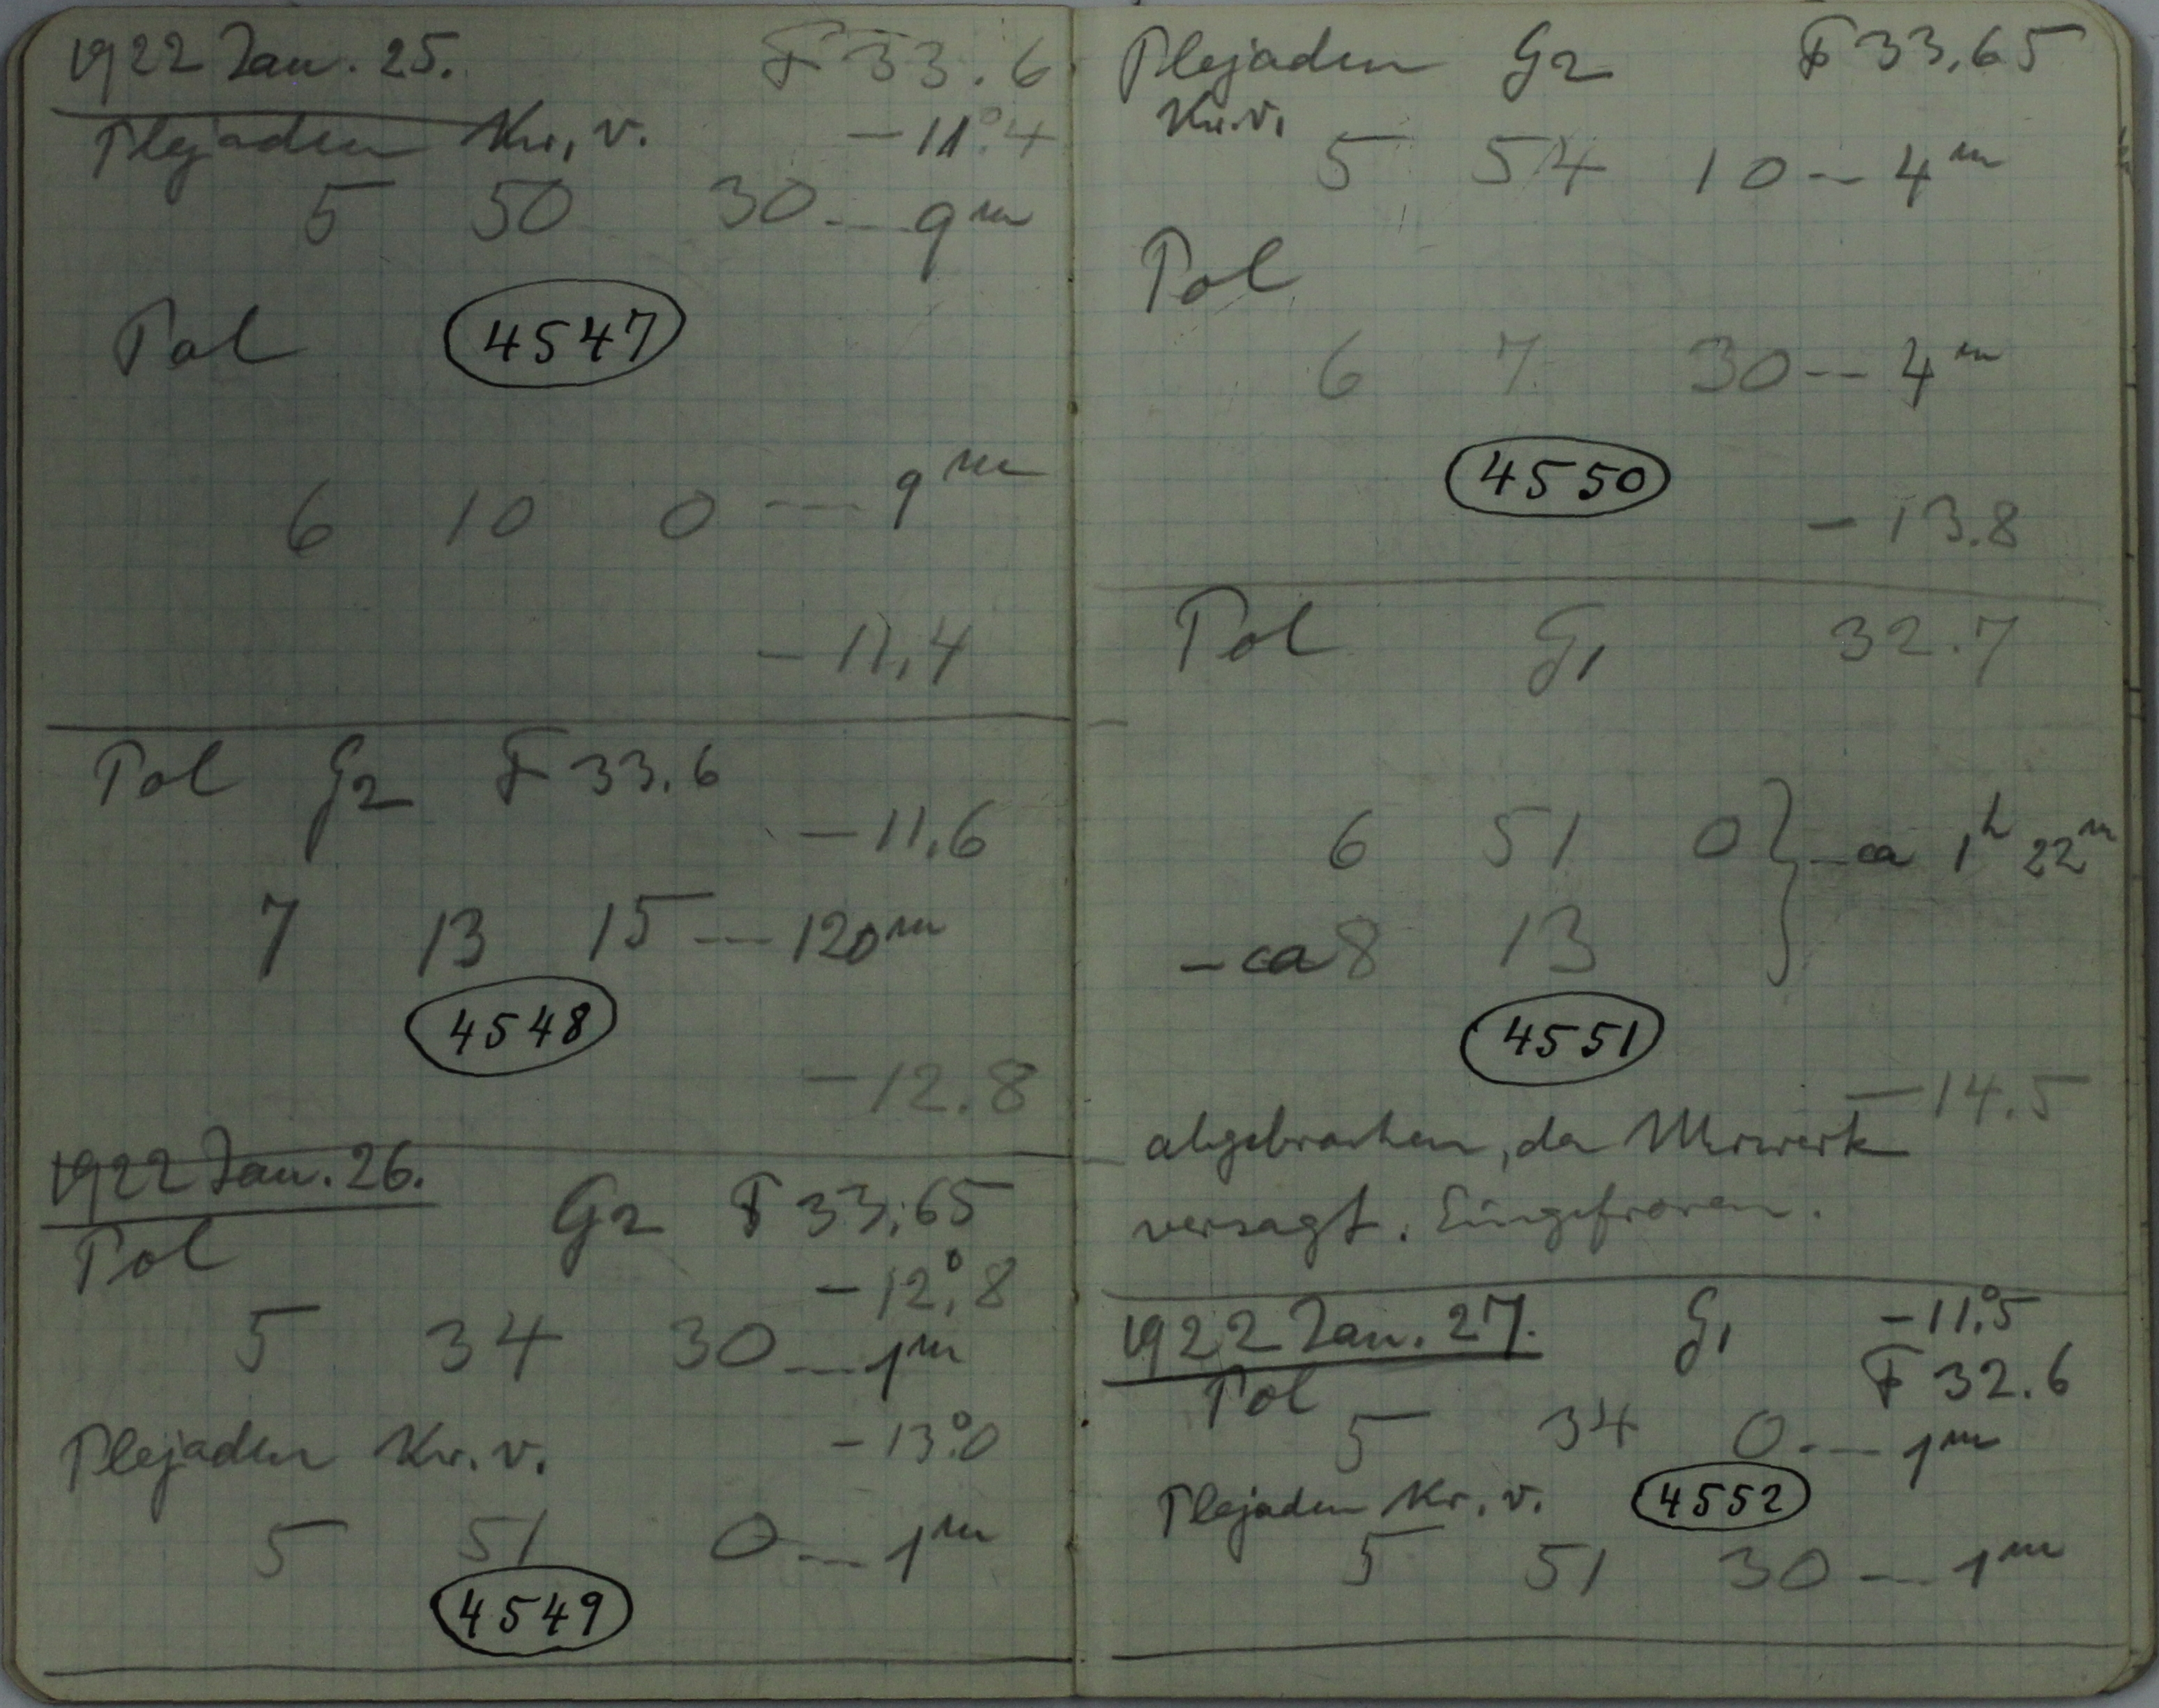 1922 Jan. 25. F 33.6
Plejaden Kr. v. -11°.4
5 50 30 -- 9ᵐ
Pol 4547
6 10 0 --- 9ᵐ
-11,4
Pol G2 F 33.6
-11,6
7 13 15 --- 120ᵐ
4548
-12.8
1922 Jan. 26.
Pol G2 F 33,65
-12°,8
5 34 30 -- 1ᵐ
Plejaden Kr. v. -13°.0
5 51 0 -- 1ᵐ
4549
Plejaden G2 F 33,65
Kr. v.
5 54 10 -- 4ᵐ
Pol
6 7 30 -- 4ᵐ
4550
-13.8
Pol G1 32.7
6 51 0 } -ca 1ʰ 22ᵐ
-ca 8 13
4551
-14.5
abgebrochen, da Uhrwerk
versagt. Eingefroren.
1922 Jan. 27. G1 -11°.5
F 32.6
Pol
5 34 0 -- 1ᵐ
Plejaden Kr. v. 4552
5 51 30 -- 1ᵐ